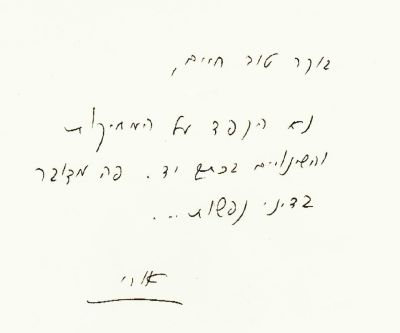 בוקר טוב חיים,
נא הקפד על המחיקות
והשינויים בכתב יד. פה מדובר
בדיני נפשות...
אורי